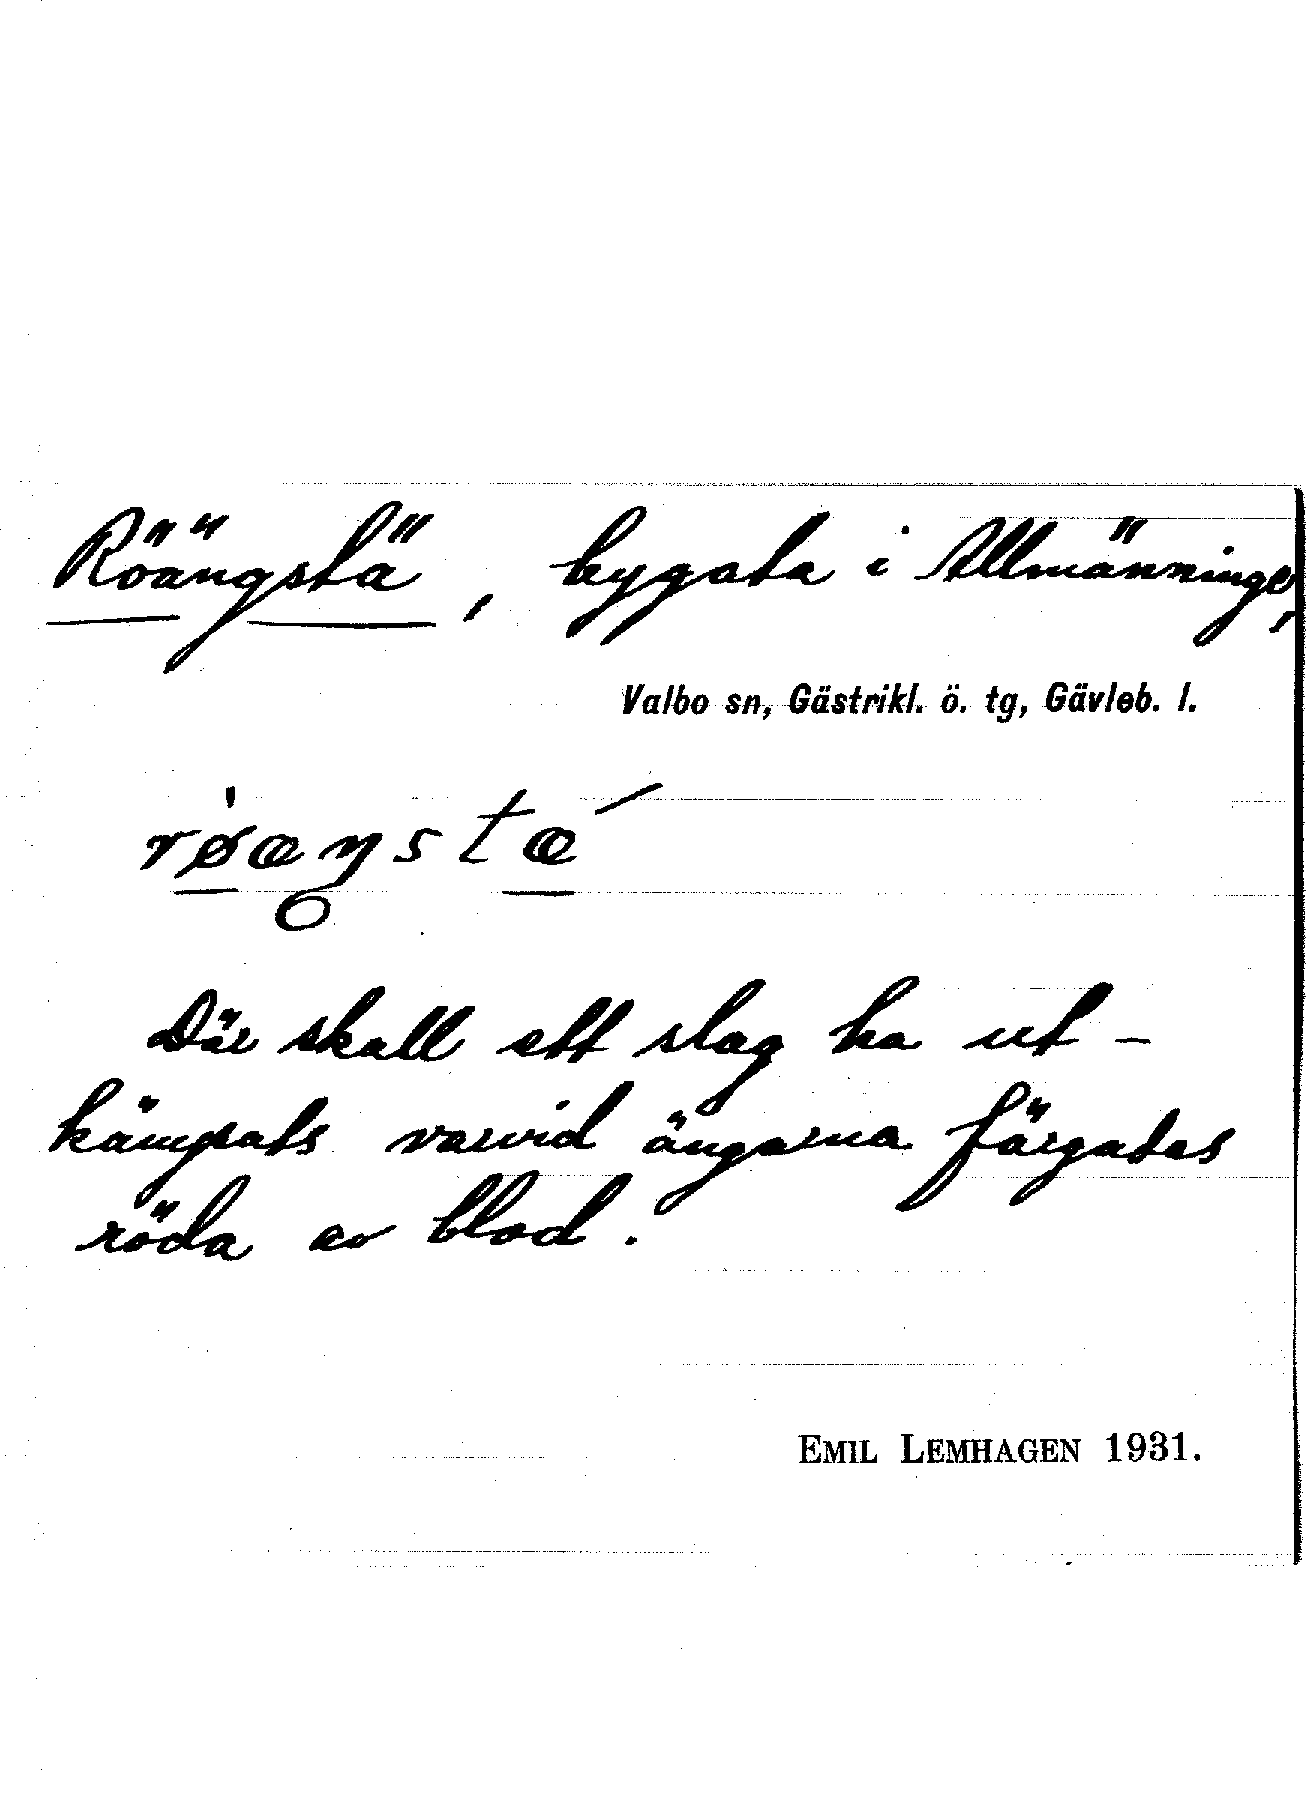 Röängstä, bygata i Allmänninge,
Valbo sn, Gästrikl. ö. tg, Gävleb. l.
rø̀æŋstæ´
Där skall ett slag ha ut-
kämpats varvid ängarna färgades
röda av blod.
EMIL LEMHAGEN 1931.